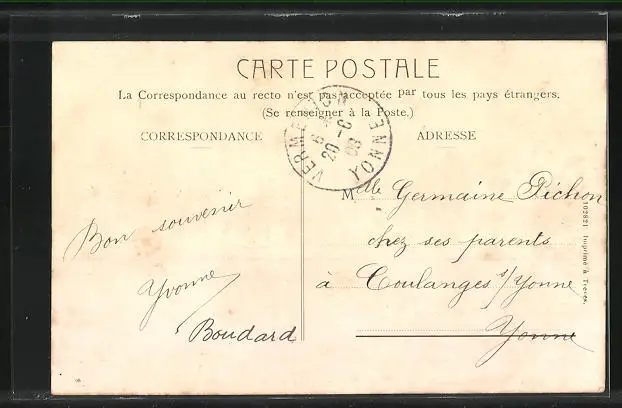 CARTE POSTALE
La Correspondance au recto n'est pas acceptée par tous les pays étrangers.
(Se renseigner à la Poste.)
CORRESPONDANCE
ADRESSE
VERMENTON
20-6
08
YONNE
Bon souvenir
Yvonne
Boudard
Mlle Germaine Pichon
chez ses parents
à Coulanges s/Yonne
Yonne
102821 Imprimé à Trèves.